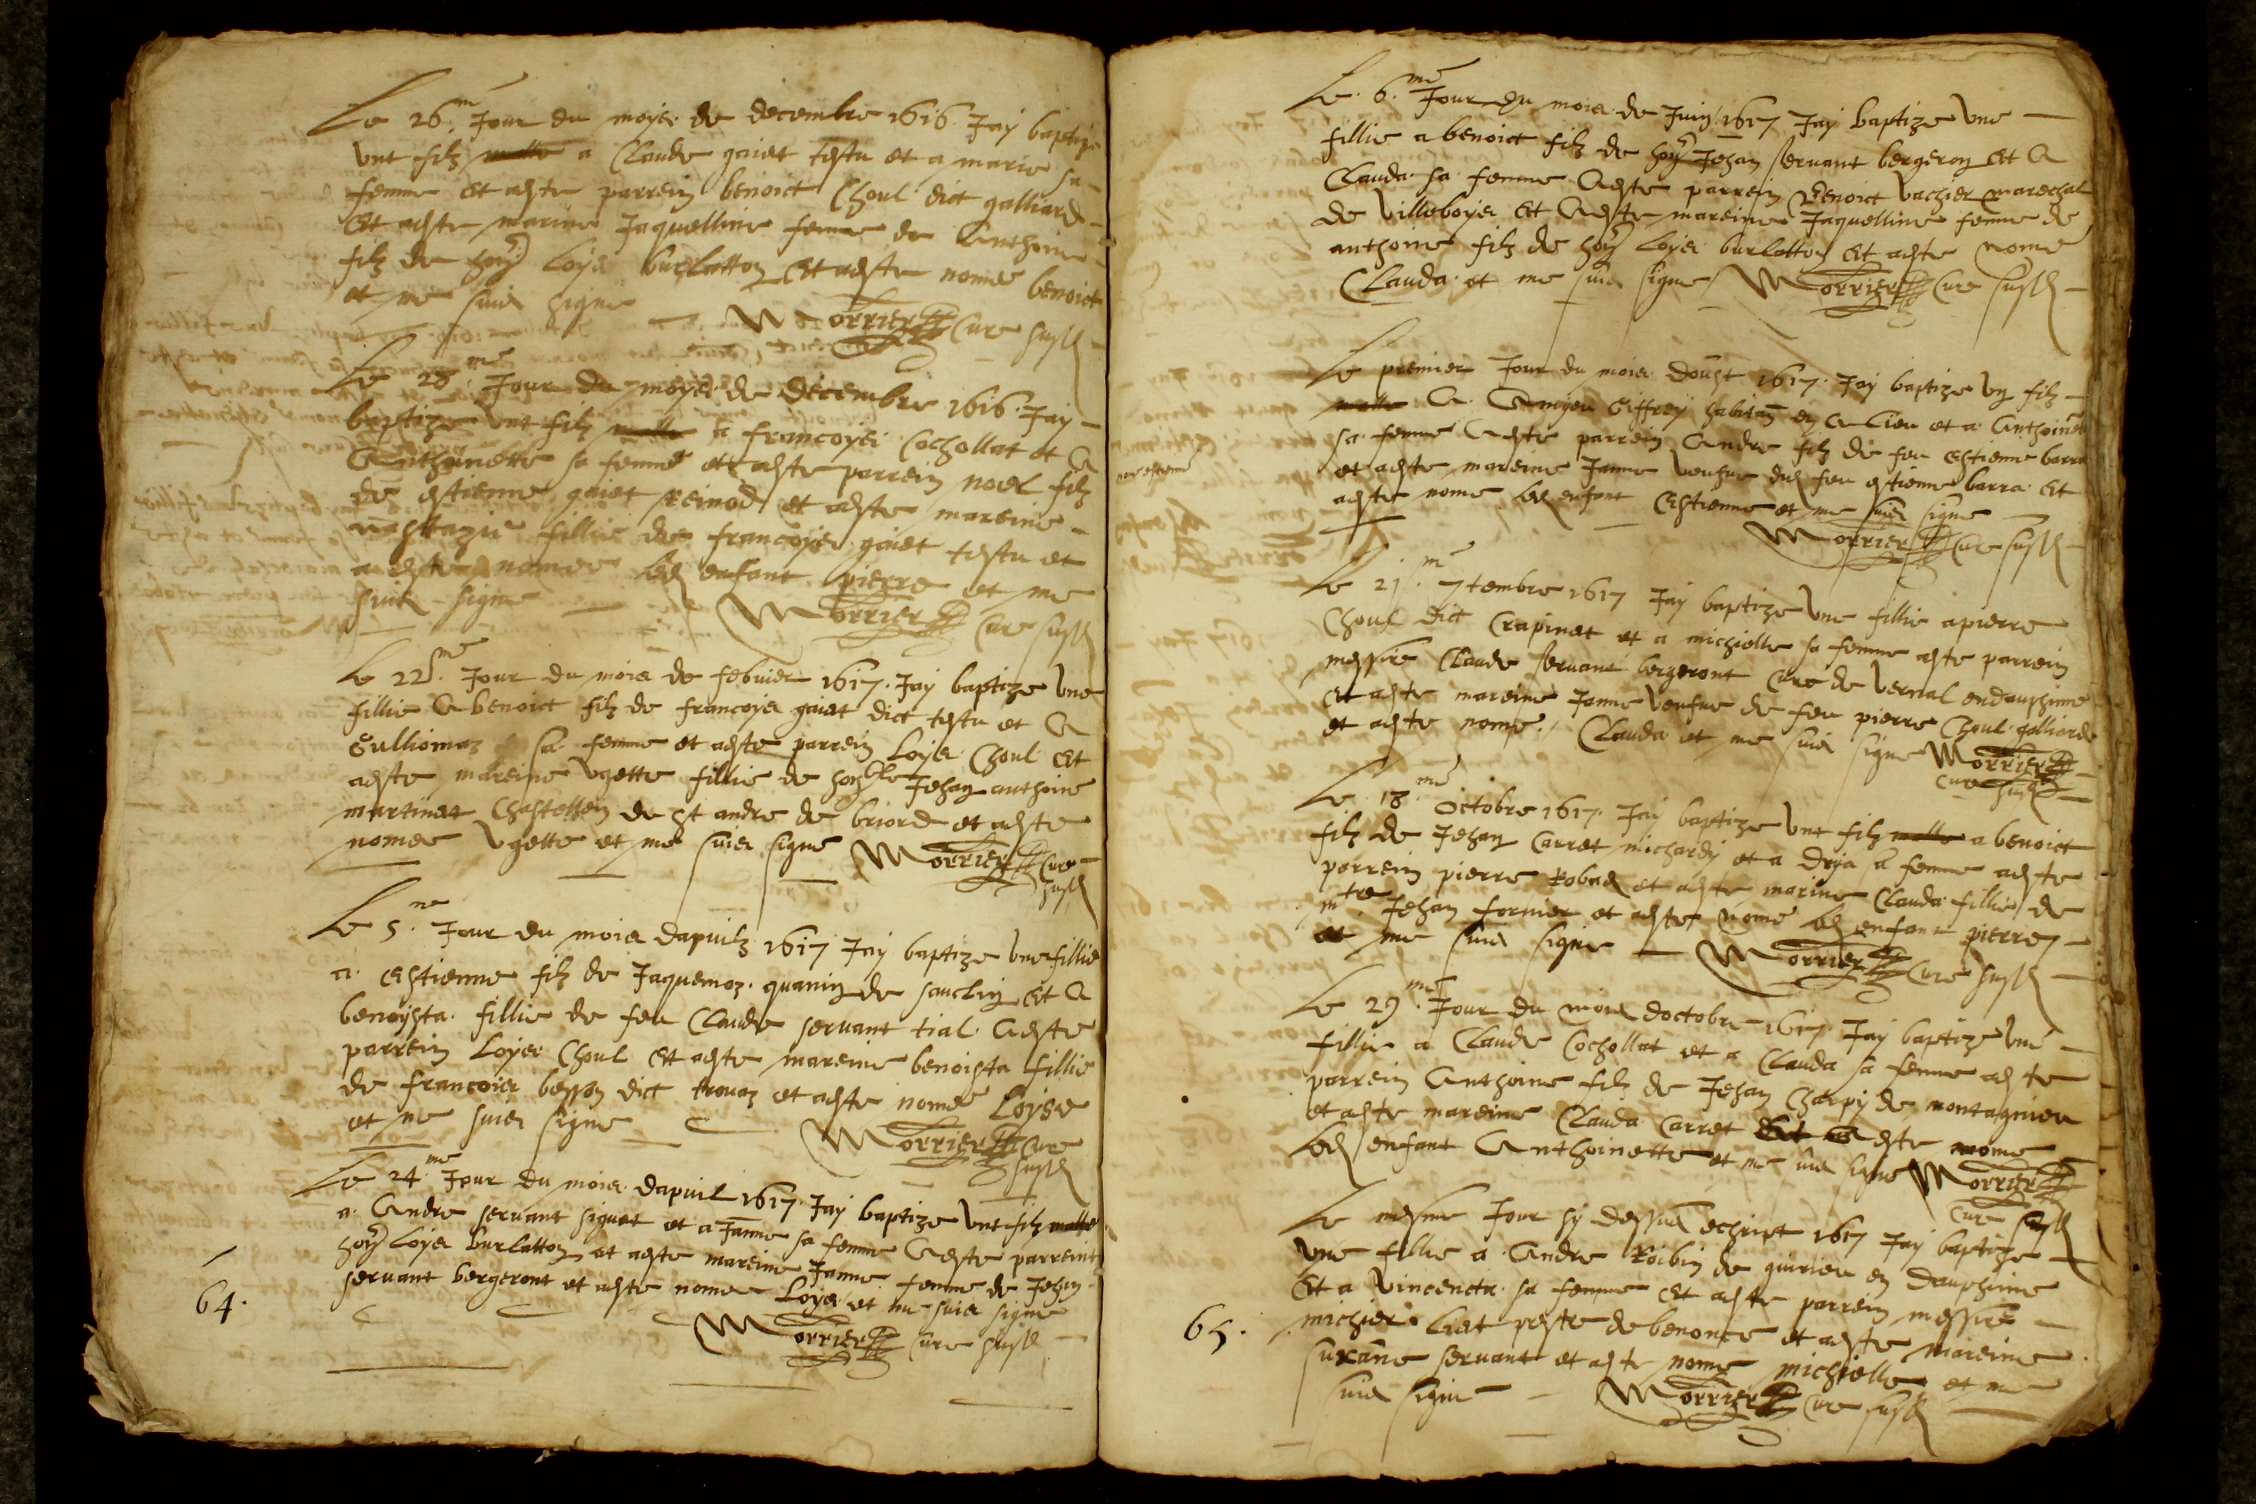 Le 26.m Jour du moys de decembre 1616 Jay baptize
vnt filz malle a Claude gaiet testu et a marie sa
femme et aeste parrein benoict Choul dict galliard
Et aeste marine Jaquelline femme de Anthoine
filz de hoy Loys burlatton Et aeste nome benoict
et me suis signe Morrier Cure susd
Le 28.me Jour du moys de decembre 1616 Jay
baptize vnt filz malle a francoys Cochollat et a
Anthoinette sa femme et aeste parrein noel filz
de estienne gaiet reinod et aeste mareine
fillie de francoys gaiet testu et
a aeste nomee led enfant pierre et me
suis signe Morrier Cure susd
Le 22.me Jour du mois de febvier 1617. Jay baptize vne
fillie a benoict filz de francoys gaiet dict testu et a
Gulliomaz sa femme et aeste parrein Loys Choul Et
aeste mareine vgette fillie de honble Jehan anthoine
martinat Chastellein de st andre de briord et aeste
nomee vgette et me suis signe Morrier Cure
susd
Le 5.me Jour du mois dapvilz 1617 Jay baptize vne fillie
a Estienne filz de Jaquemoz quanin de sauclin Et a
benoysta fillie de feu Claude servant tial Aeste
parrein Loys Choul Et aeste mareine benoista fillie
de francois besson dict trouaz et aeste nomé Loyse
et me suis signe Morrier Cure
susd
Le 24.me Jour du mois dapuil 1617. Jay baptize vnt filz malle
a Andre servant siquet et a Janne sa femme Aeste parreint
hoy Loys burlatton et aeste mareine Janne femme de Jehan
servant bergeront et aeste nome Loys et me suis signe
Morrier Cure susd
64.
Le 6.me Jour du mois de Juin 1617 Jay baptize vne
fillie a benoict filz de hoy Jehan servant bergeron Et a
Clauda sa femme Aeste parrein Benoict vachier marechal
de villeboys Et Aeste mareine Jaquelline femme de
anthoine filz de hoy Loys burlatton Et aeste nome
Clauda et me suis signe Morrier Cure susd
Le premier Jour du mois doust 1617. Jay baptize vn filz
malle a Amyed Giffrey habitan en a lieu et a Anthoinete
sa femme Aeste parrein Andre filz de feu estienne barra
et aeste mareine Janne veufue dud feu estienne barra Et
aeste nome led enfant Estienne et me suis signe
Morrier Cure susd
Le 21.m 7tembre 1617 Jay baptize vne fillie a pierre
Choul dict Crapinet et a michielle sa femme aeste parrein
messire Claude servant bergeront Cure de vertal endauphine
Et aeste mareine Janne veufue de feu pierre Choul galliard
et aeste nome Clauda et me suis signe Morrier
Cure susd
Le 18.me Octobre 1617. Jay baptize vnt filz malle a benoict
filz de Jehan Carret michardy et a Drya sa femme aeste
parrein pierre Robad et aeste marine Clauda fillie de
mtre Jehan fornier et aeste nome led enfant pierre
et me suis signe Morrier Cure susd
Le 29.me Jour du mois doctobre 1617. Jay baptize vne
fillie a Claude Cochollat et a Clauda sa femme aeste
parrein Anthoine filz de Jehan Charpy de montagnieu
et aeste mareine Clauda Carret aeste nome
led enfant Anthoinette et me suis signe Morrier
Cure susd
Le mesme Jour sy dessus eschript 1617 Jay baptize
vne fillie a Andre Robin de quirieu en Dauphine
Et a Vincenta sa femme Et aeste parrein messire
michier Liat prestre de benonce et aeste mareine
suzane servant et aeste nome michielle et me
suis signe Morrier Cure susd
65.